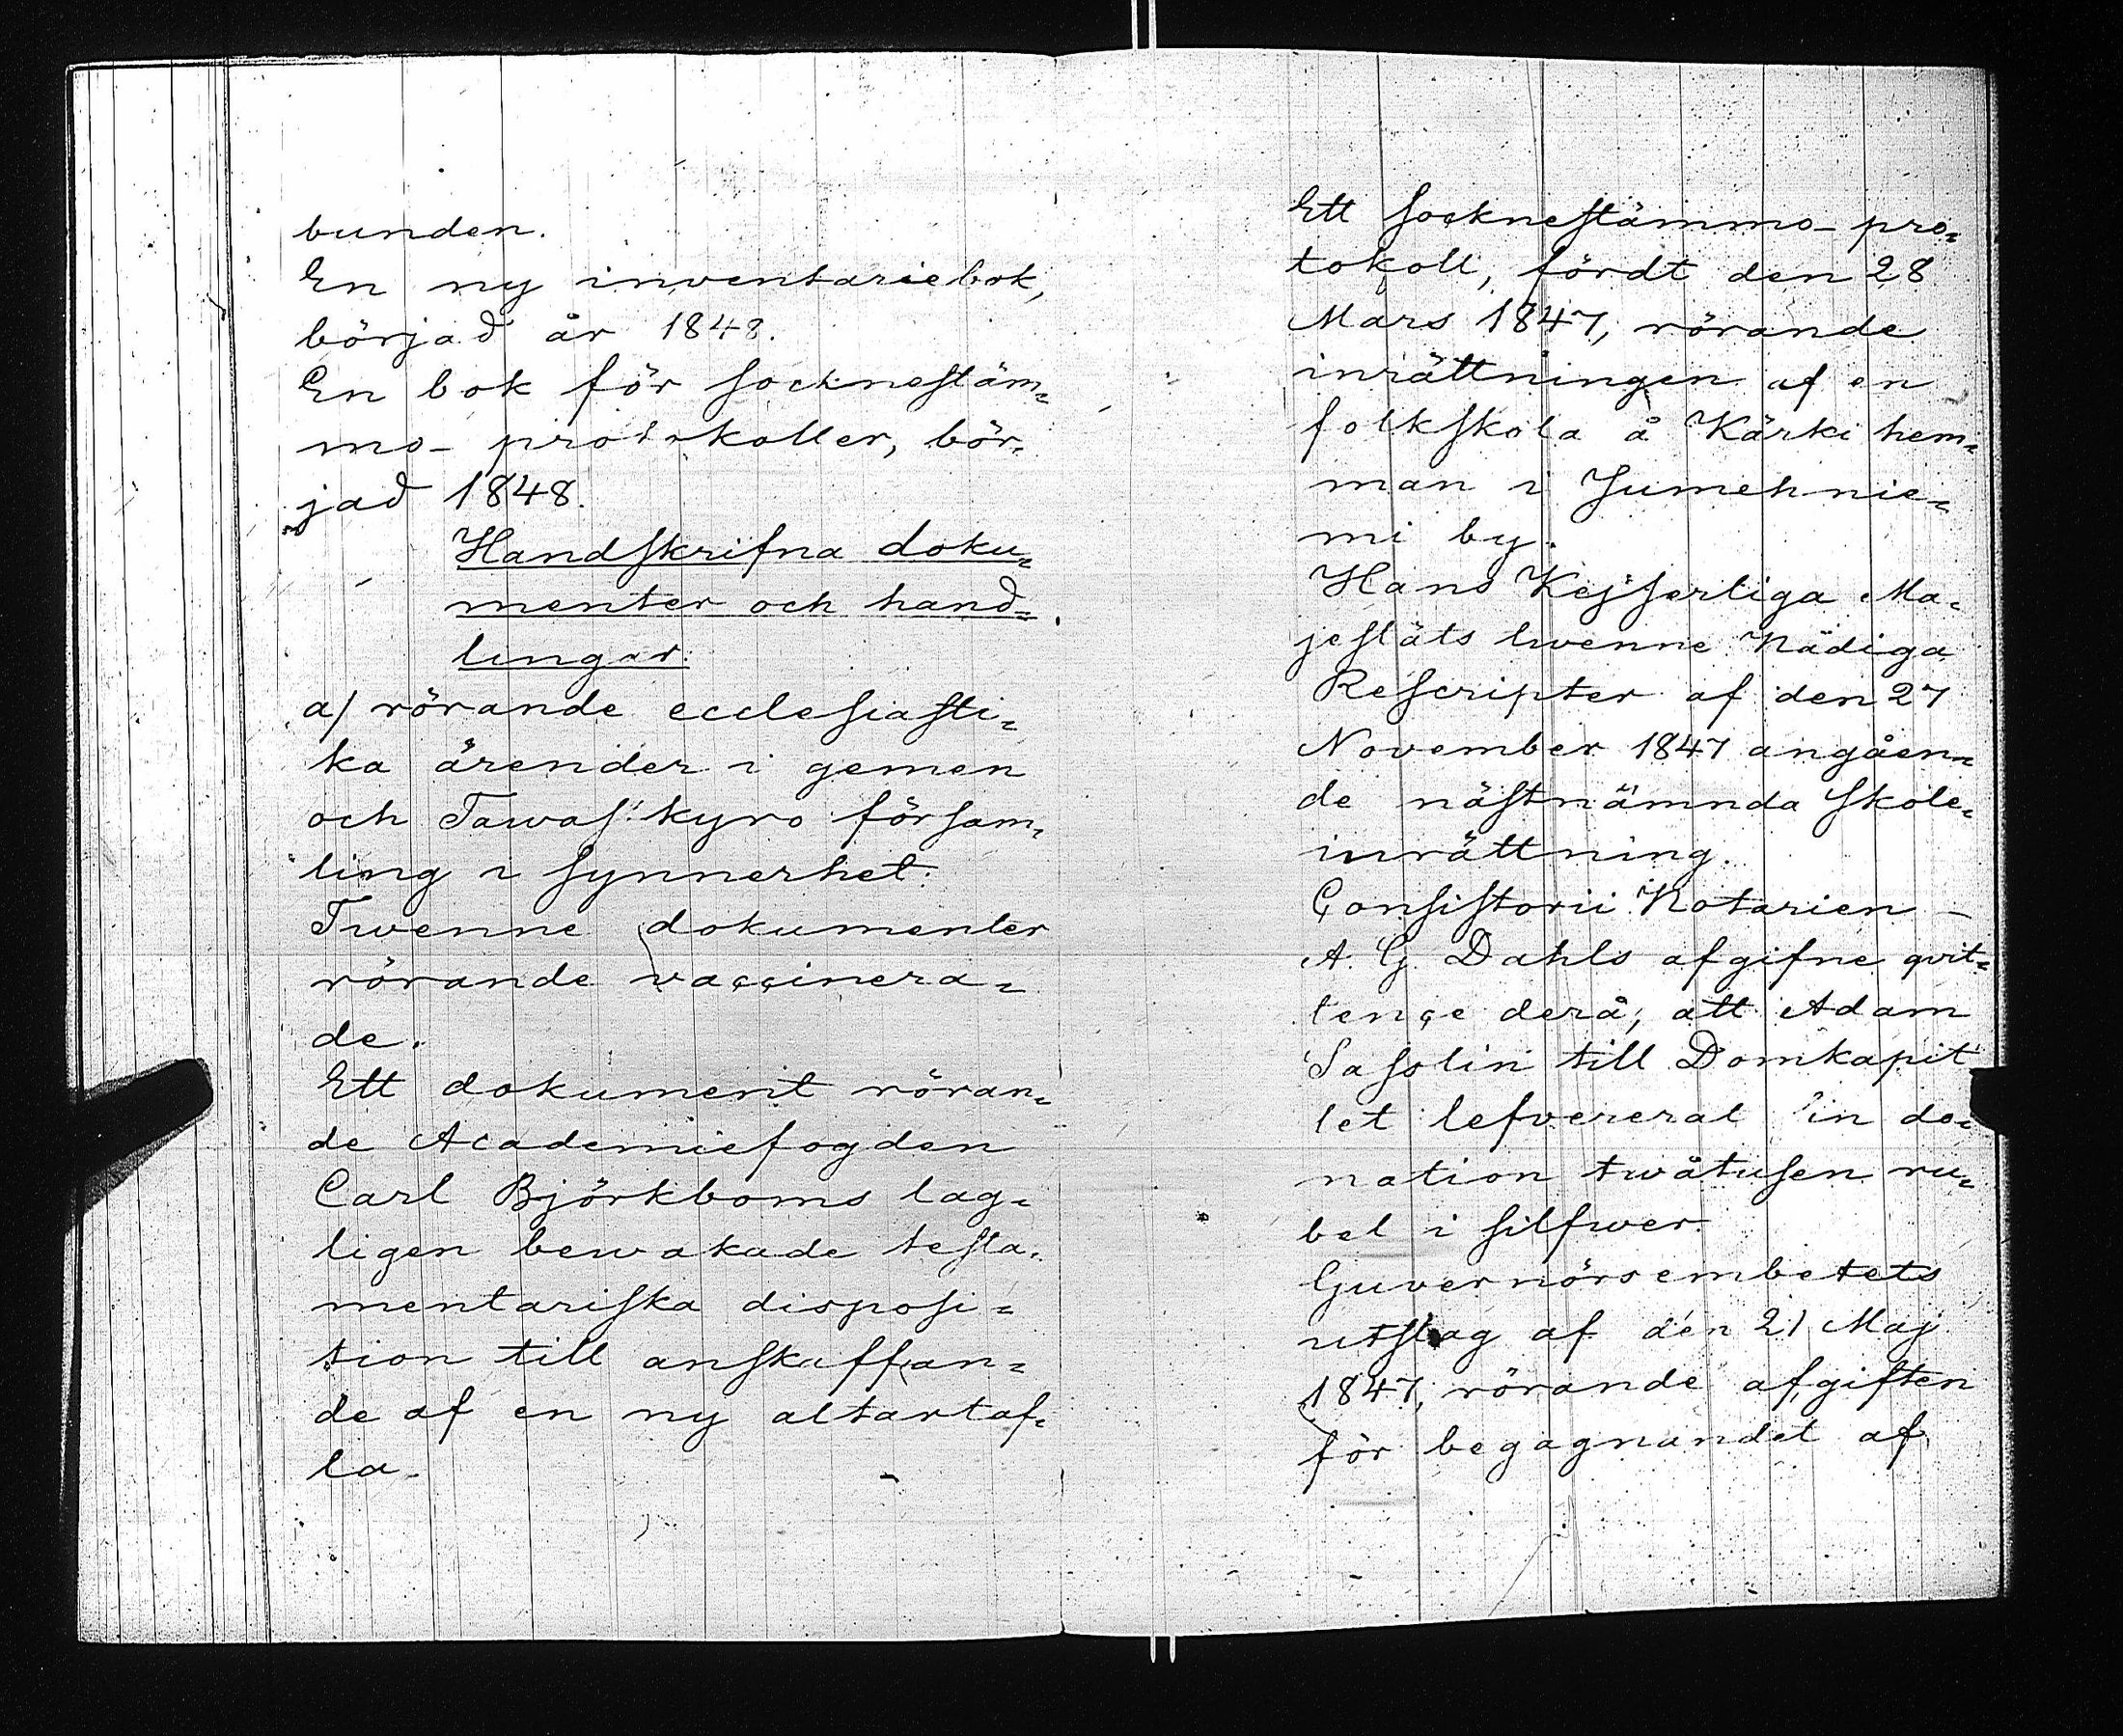 bunden.
En ny inventariebok,
börjad år 1848.
En bok för socknestäm=
mo- protokoller, bör=
jad 1848.
Handskrifna doku=
menter och hand=
lingar.
a/ rörande ecclesiasti=
ka ärender i gemen
och Tawastkyro försam=
ling i synnerhet.
Twenne dokumenter
rörande vaccinera=
de.
Ett dokument röran=
de Academiefogden
Carl Björkboms lag=
ligen bewakade testa=
mentariska disposi=
tion till anskaffan=
de af en ny altartaf=
la.
Ett socknestämmo- pro=
tokoll, fördt den 28
Mars 1847, rörande
inrättningen af en
folkskola å Kärki hem=
man i Jumehnie=
mi by.
Hans Kejserliga Ma=
jestäts twenne Nådiga
Rescripter af den 27
November 1847 angåen=
de nästnämnda skole=
inrättning.
Consistorii Notarien -
A. G. Dahls afgifne qvit=
tence derå, att Adam
till Domkapit
let lefvererat in do=
nation twåtusen ru=
bel i silfwer.
Guvernörsembetets
utslag af den 21 Maj
1847, rörande afgiften
för begagnandet af